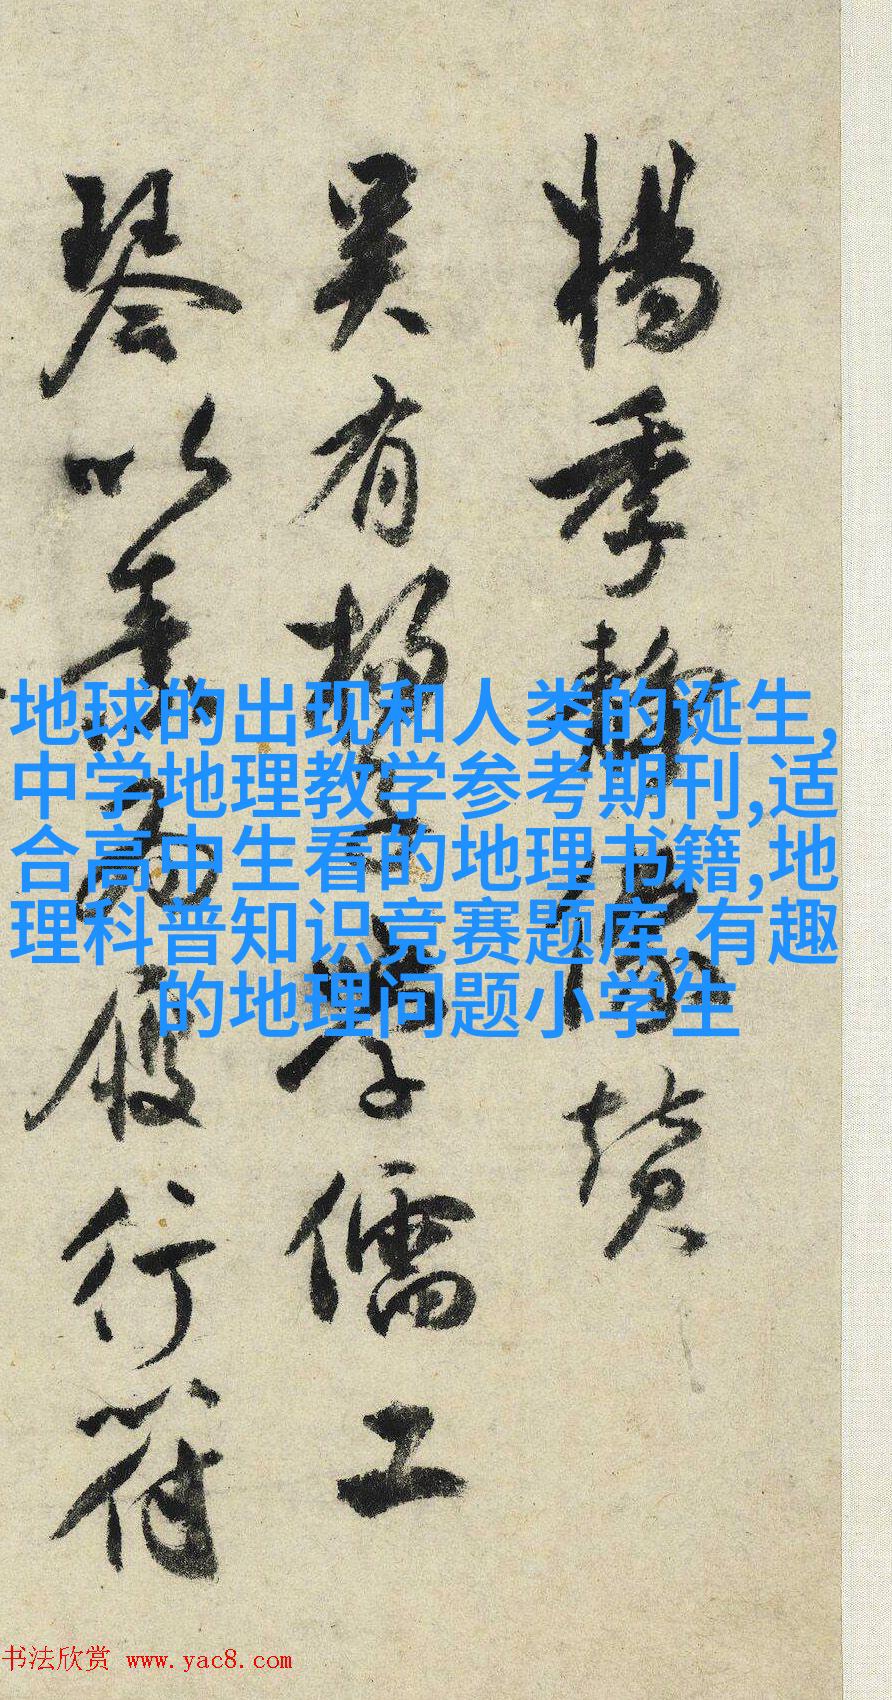 楊季靜像賛
吴有楊子學儒工
琴以義為履行符
地球的出现和人类的诞生,
中学地理教学参考期刊,适
合高中生看的地理书籍,地
理科普知识竞赛题库,有趣
的地理问题小学生
书法欣赏 www.yac8.com